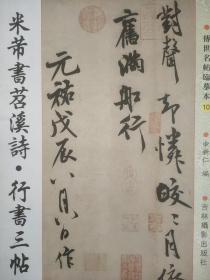 傳世名帖臨摹本
10
編
吉林攝影出版社
對聲却憐皎々月依
舊滿船行
元祐戊辰八月八日作
米芾書苕溪詩·行書三帖